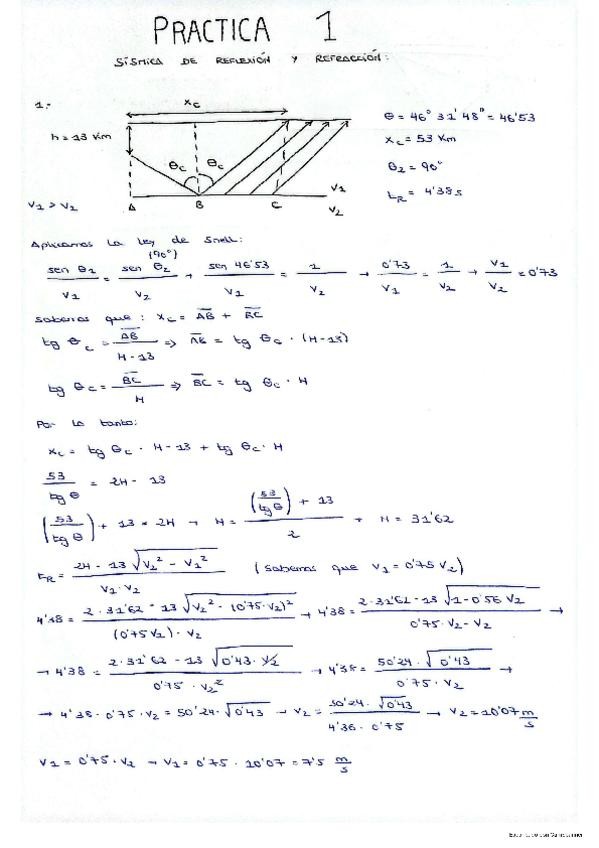 PRACTICA 1
SÍSMICA DE REFLEXIÓN Y REFRACCIÓN:
1.-
xc
h = 13 Km
θc
θc
V1 > V2
A
B
C
V1
V2
θ = 46° 31' 48" = 46'53
xc = 53 Km
θ2 = 90°
tR = 4'38 s
Aplicamos la ley de Snell:
(90°)
sen θ1 / V1 = sen θ2 / V2 → sen 46'53 / V1 = 1 / V2 → 0'73 / V1 = 1 / V2 → V1 / V2 = 0'73
sabemos que: xc = AB + BC
tg θc = AB / H - 13 ⇒ AB = tg θc · (H-13)
tg θc = BC / H ⇒ BC = tg θc · H
Por lo tanto:
xc = tg θc · H - 13 + tg θc · H
53 / tg θ = 2H - 13
(53 / tg θ) + 13 = 2H → H = (53 / tg θ) + 13 / 2 → H = 31'62
tR = 2H - 13 √V2² - V1² / V1 · V2 (sabemos que V1 = 0'75 V2)
4'38 = 2·31'62 - 13 √V2² - (0'75·V2)² / (0'75 V2) · V2 → 4'38 = 2·31'62 - 13 √1 - 0'56 V2 / 0'75 · V2 - V2 →
→ 4'38 = 2·31'62 - 13 √0'43 · V2 / 0'75 · V2² → 4'38 = 50'24 · √0'43 / 0'75 · V2 →
→ 4'38 · 0'75 · V2 = 50'24 · √0'43 → V2 = 50'24 · √0'43 / 4'36 · 0'75 → V2 = 10'07 m/s
V1 = 0'75 · V2 → V1 = 0'75 · 10'07 = 7'5 m/s